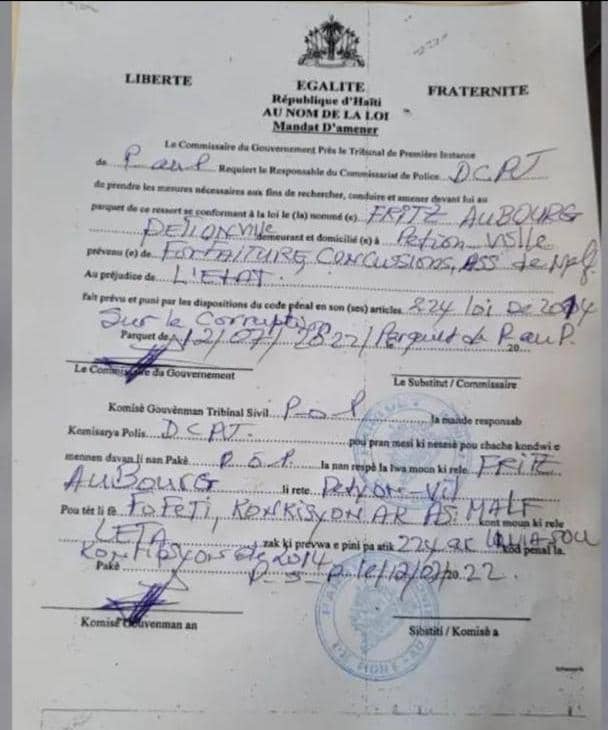 LIBERTE
EGALITE
FRATERNITE
République d'Haïti
AU NOM DE LA LOI
Mandat D'amener
Le Commissaire du Gouvernement Près le Tribunal de Première Instance
de P au P Requiert le Responsable du Commissariat de Police DCPJ
de prendre les mesures nécessaires aux fins de rechercher, conduire et amener devant lui au
parquet de ce ressort se conformant à la loi le (la) nommé (e) FRITZ AUBOURG
PETIONVille demeurant et domicilié (e) à Petion Ville
prévenu (e) de FORFAITURE, CONCUSSIONS, ASS de Malf
Au préjudice de L'ETAT.
fait prévu et puni par les dispositions du code pénal en son (ses) articles 224 loi de 2014
Sur la Corruption
Parquet de 12/07/2022/Parquet de P au P. 20
Le Commissaire du Gouvernement
Le Substitut / Commissaire
Komisè Gouvènman Tribinal Sivil P-o-P la mande responsab
Komisarya Polis DCPJ pou pran mesi ki nesesè pou chache kondwi e
mennen davan li nan Pakè P o P. la nan respè la lwa moon ki rele FRITZ
AUBOURG li rete Petyon-Vil
Pou tèt li fè FOFETI, KONKISYON AK ASI MALF kont moun ki rele
LETA zak ki prevwa e pini pa atik 224 ak LWA SOU kòd penal la.
KORIPSYON 2014
Pakè P-o-P le 12/07/2022.
Komisè Gouvenman an
Sibstiti / Komisè a